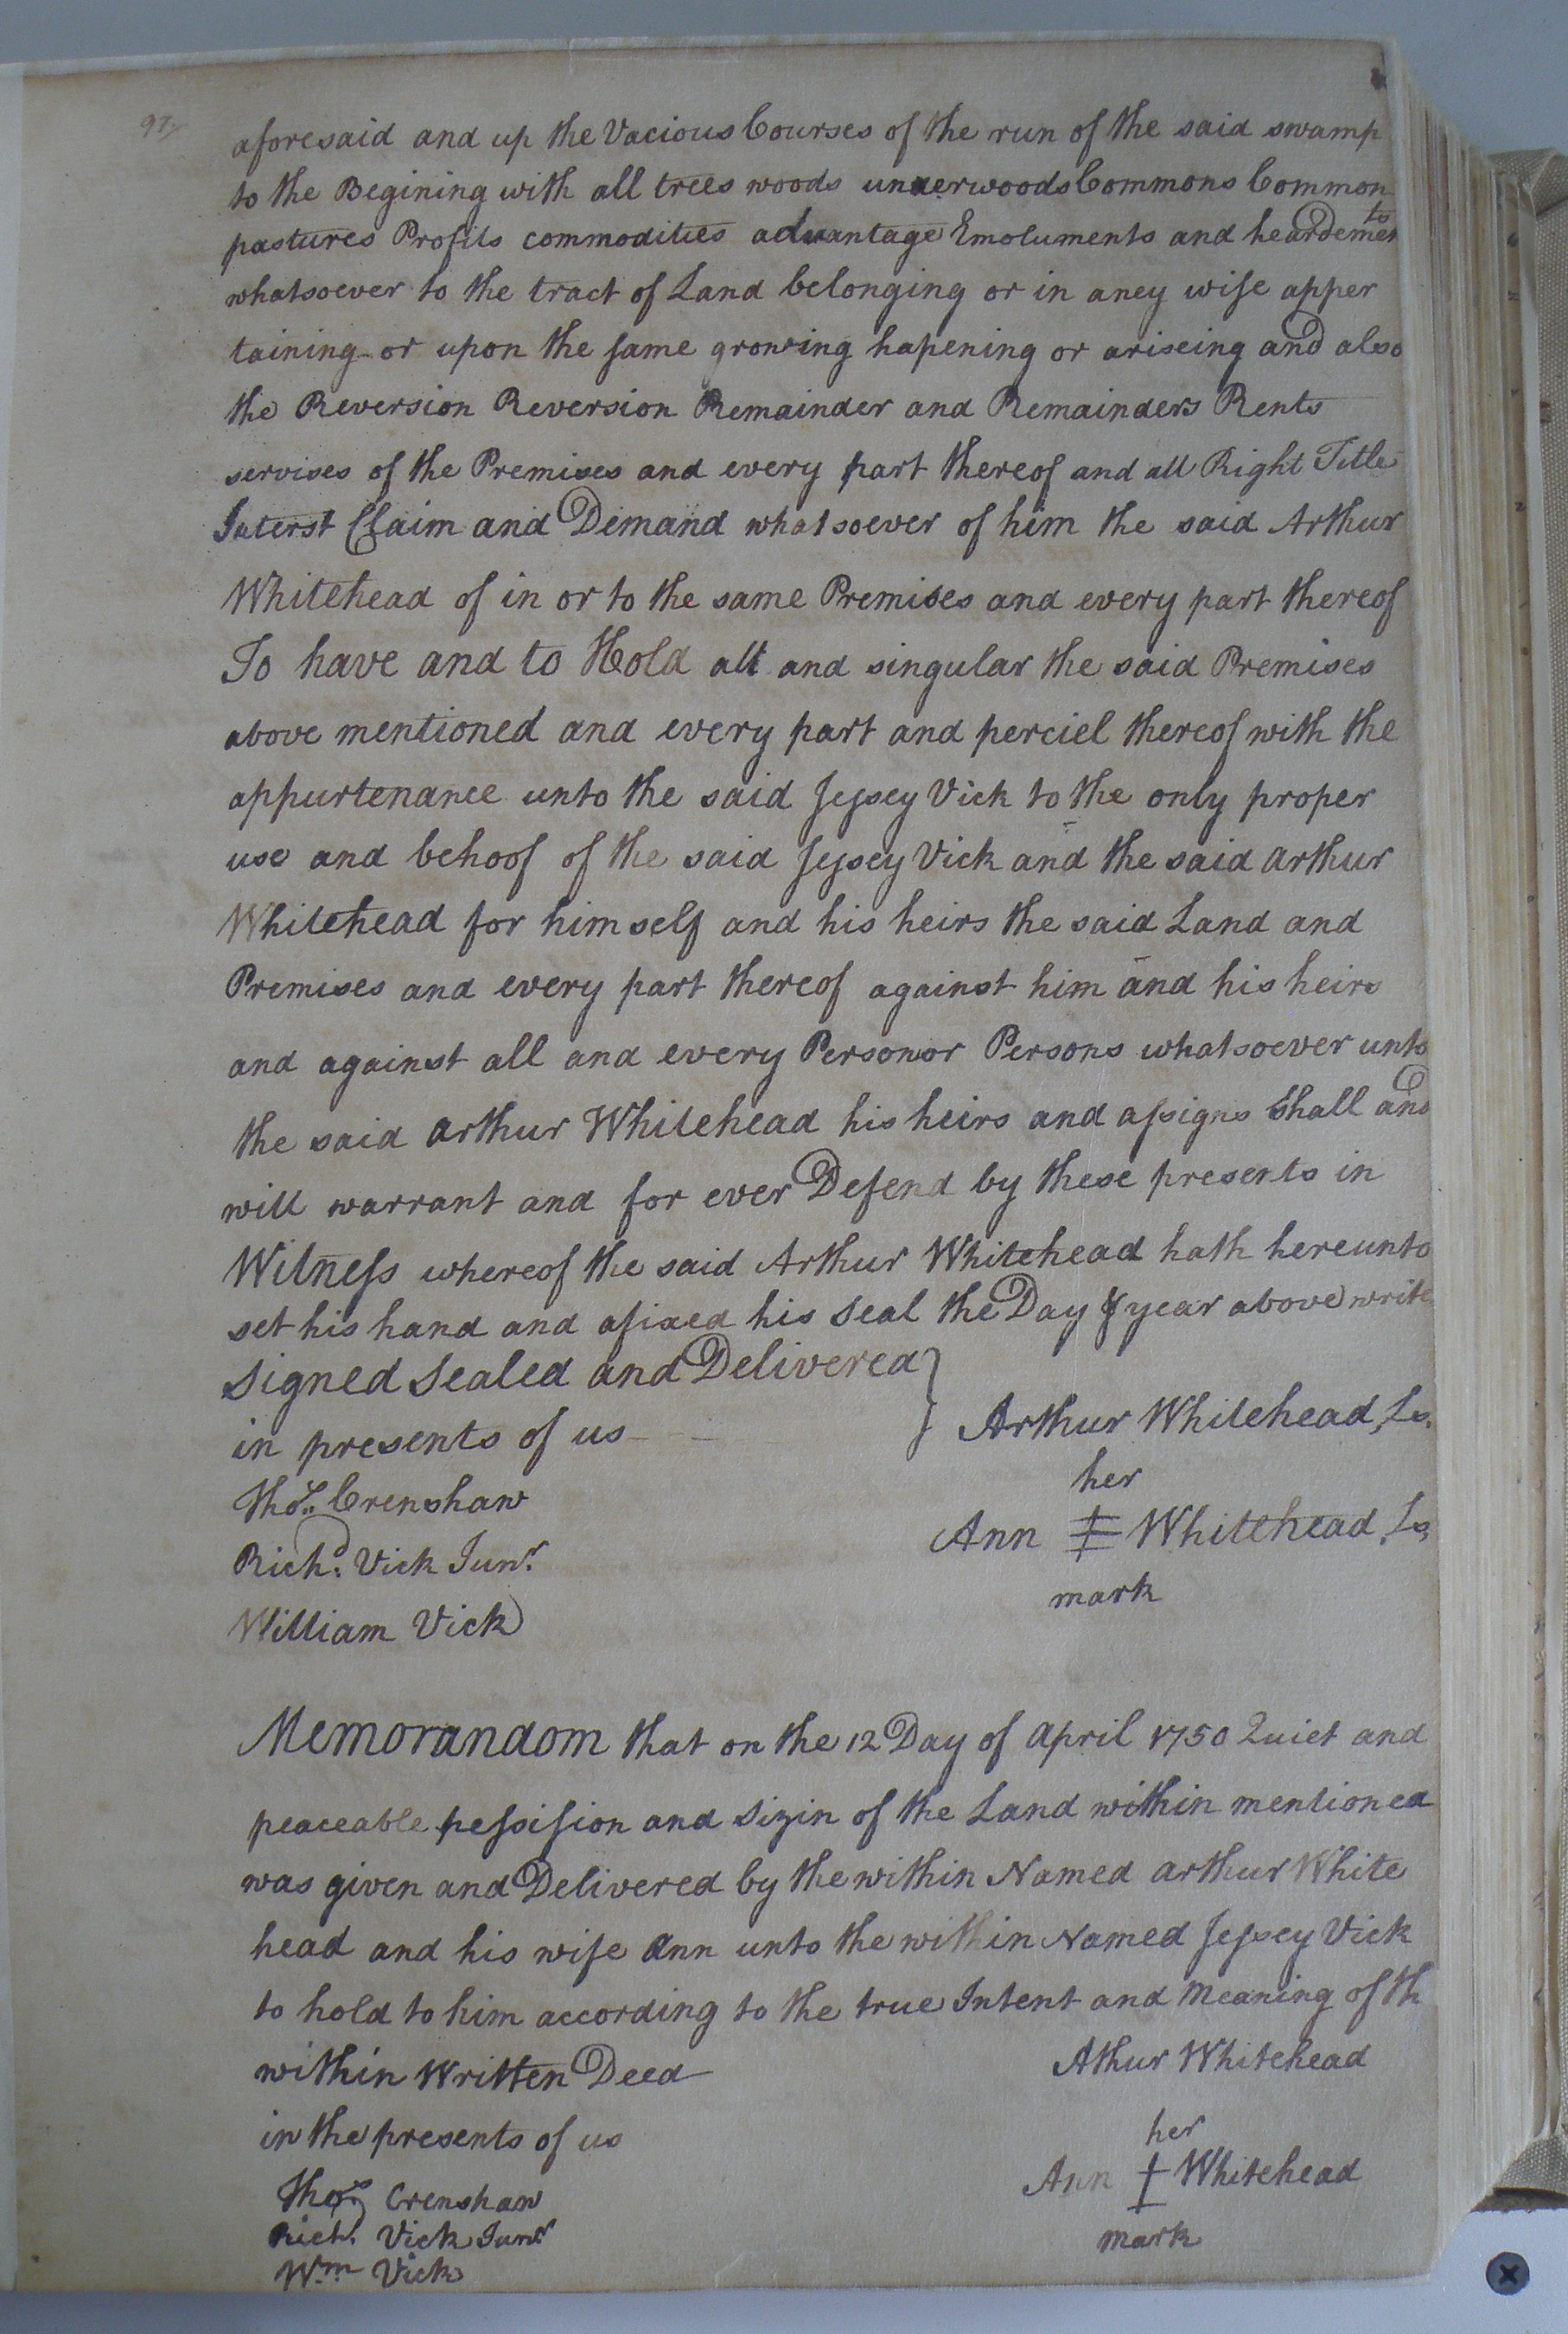 97
aforesaid and up the Vacious Courses of the run of the said swamp
to the Begining with all trees woods underwoods Commons Common
pastures Profits commodities advantage Emoluments and heardements
whatsoever to the tract of Land belonging or in aney wise apper
taining or upon the same growing hapening or ariseing and also
the Reversion Reversion Remainder and Remainders Rents
servises of the Premises and every part thereof and all Right Title
Interst Claim and Demand whatsoever of him the said Arthur
Whitehead of in or to the same Premises and every part thereof
To have and to Hold all and singular the said Premises
above mentioned and every part and perciel thereof with the
appurtenance unto the said Jessey Vick to the only proper
use and behoof of the said Jessey Vick and the said arthur
Whitehead for himself and his heirs the said Land and
Premises and every part thereof against him and his heirs
and against all and every Person or Persons whatsoever unto
the said arthur Whitehead his heirs and assigns Shall and
will warrant and for ever Defend by these presents in
Witness whereof the said Arthur Whitehead hath hereunto
set his hand and afixed his Seal the Day & year above write
Signed Sealed and Delivered } Arthur Whitehead, Ls.
in presents of us
her
Thos. Crenshaw
Ann ‡ Whitehead, Ls.
Richd. Vick Junr.
mark
William Vick
Memorandom that on the 12 Day of April 1750 Quiet and
peaceable pessission and Sizin of the Land within mentioned
was given and Delivered by the within Named arthur White
head and his wife Ann unto the within Named Jessey Vick
to hold to him according to the true Intent and Meaning of th
within Written Deed Athur Whitehead
in the presents of us her
Thos. Crenshaw Ann ‡ Whitehead
Richd. Vick Junr. mark
Wm. Vick